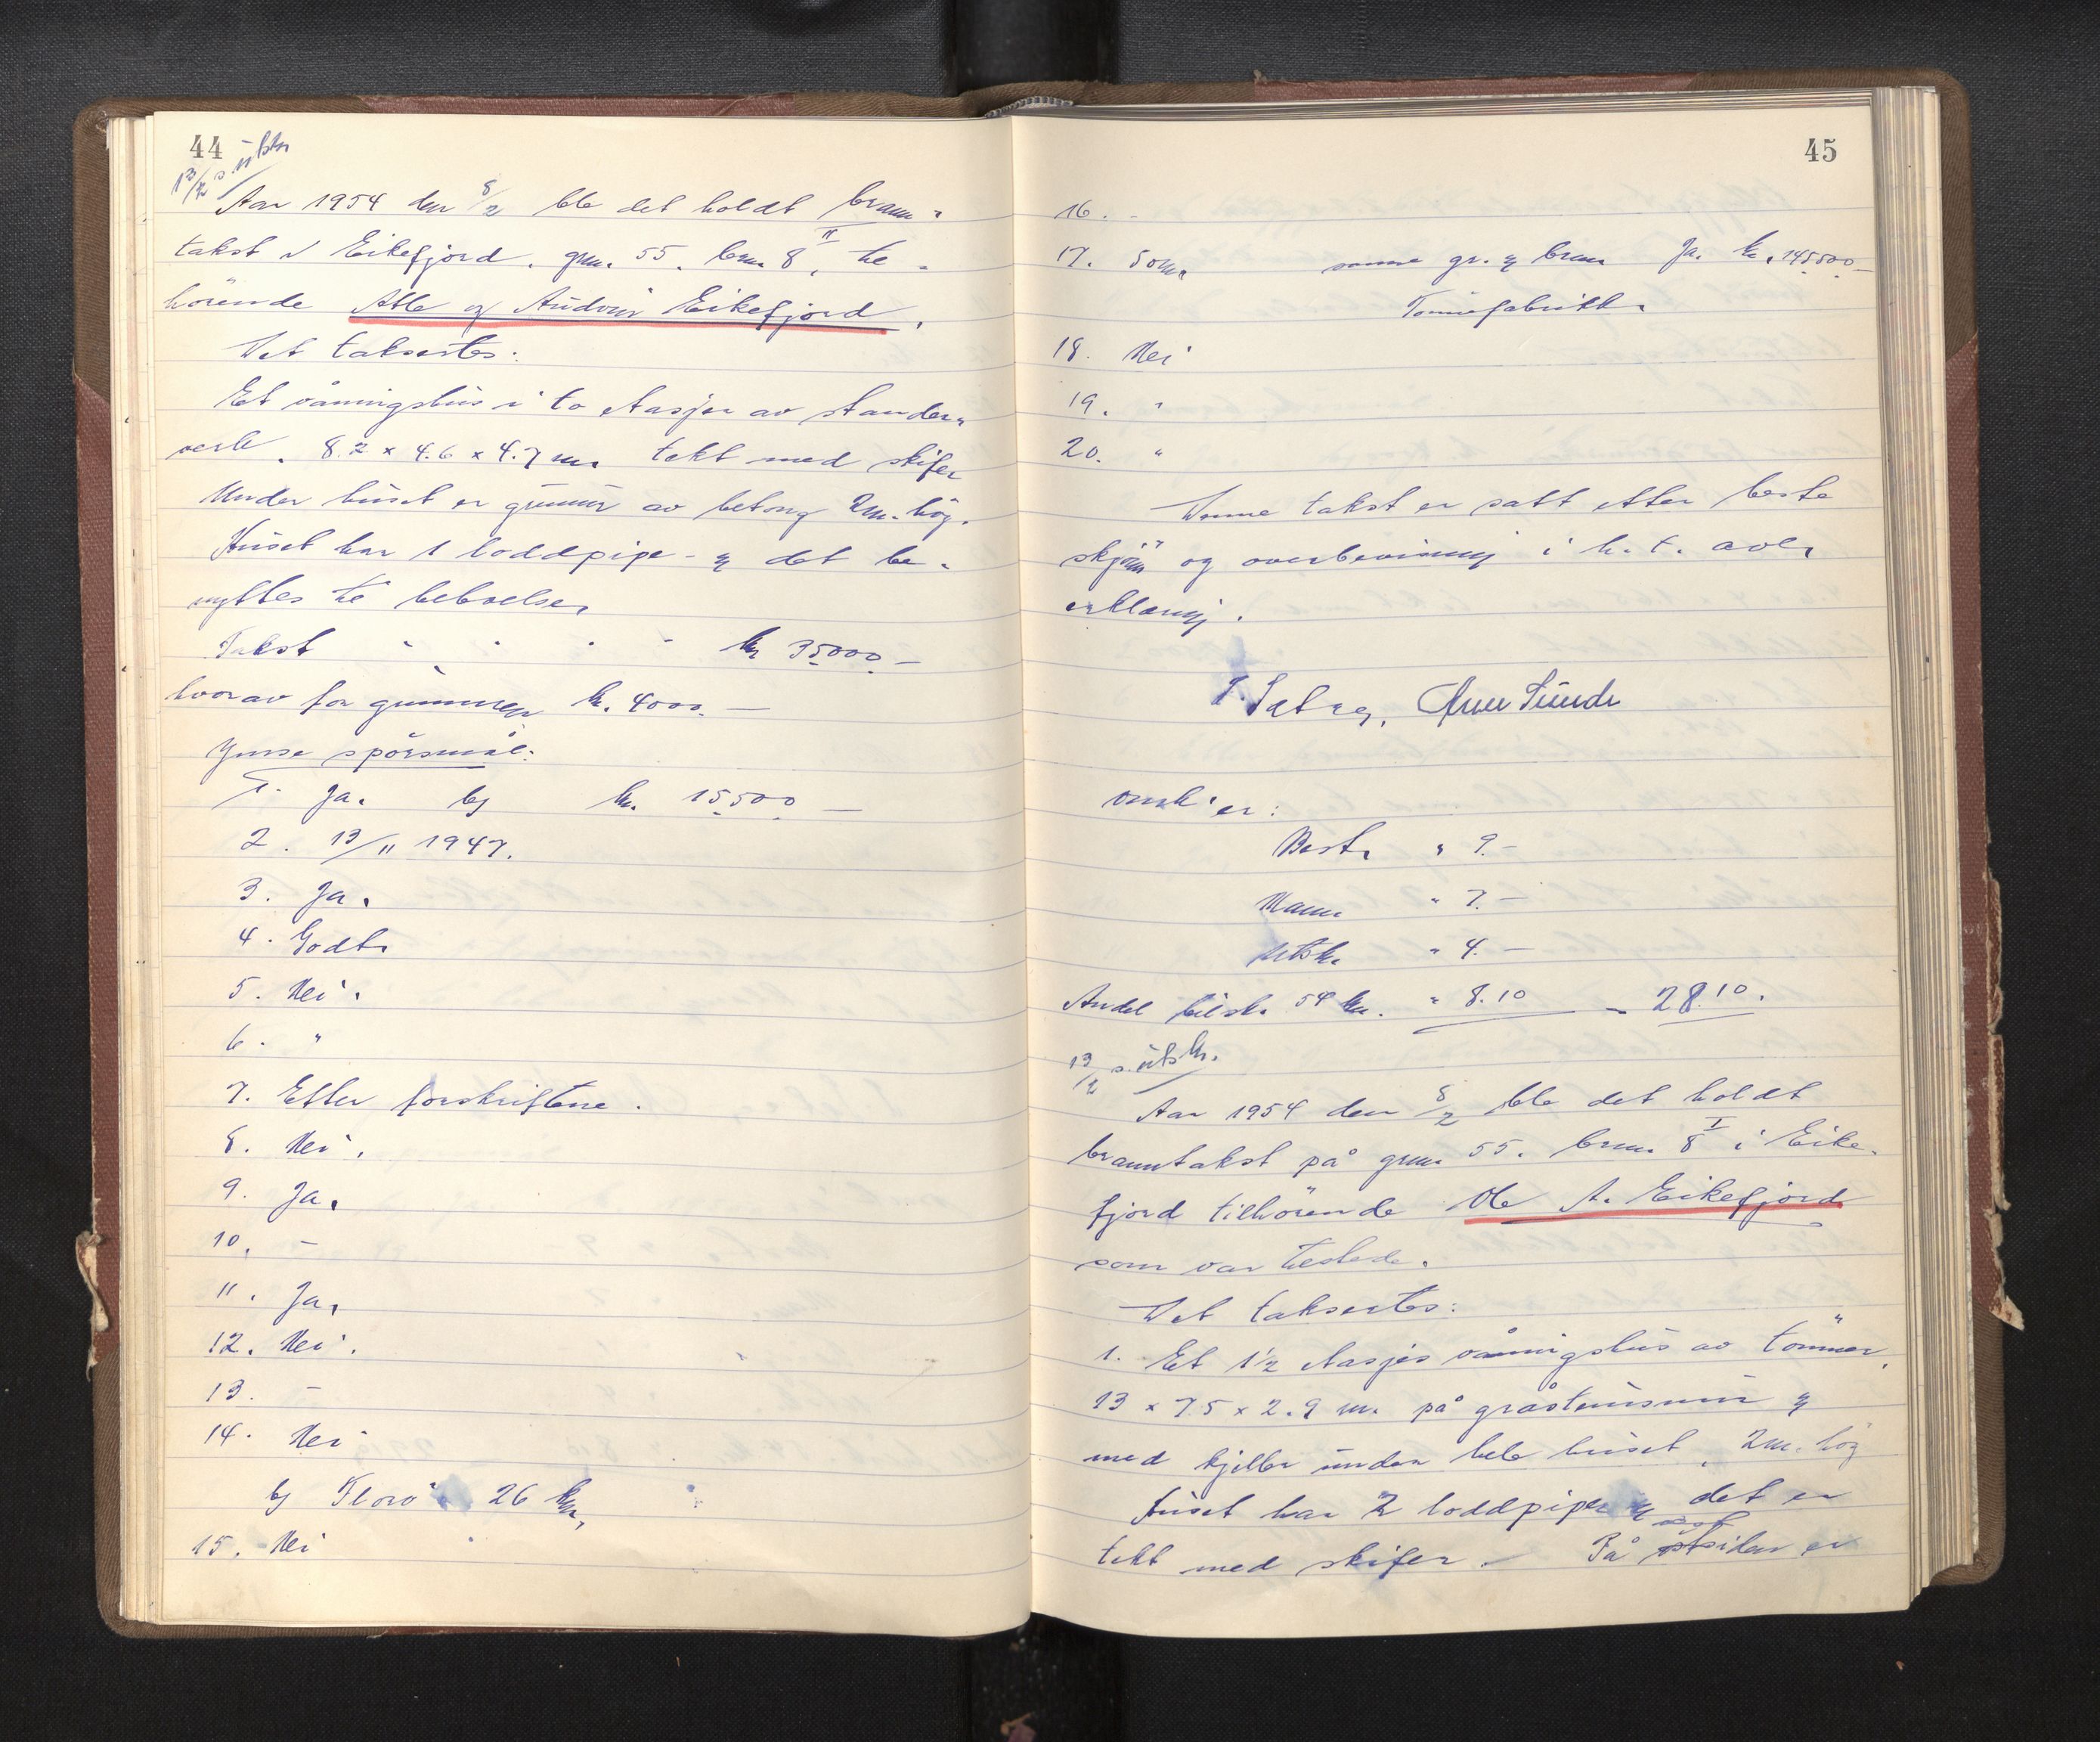 44
13/2 s. utskr
Aar 1954 den 8/2 ble det holdt brann-
takst i Eikefjord. gnr. 55. bnr. 8 II, til-
hörende Atle og Audvin Eikefjord.
Det taksertes:
Et våningshus i to etasjer av stander-
verk. 8.2 x 4.6 x 4.7 m. tekt med skifer
Under huset er grunnmur av betong 2m. hög.
Huset har 1 loddpipe - og det be-
nyttes til beboelse.
Takst - - - - kr 35000.-
hvorav for grunnmuren kr. 4000.-
Ymse spörsmål:
1. Ja. b) kr. 15500.-
2. 13/11 1947.
3. Ja.
4. Godt.
5. Nei.
6. "
7. Etter forskriftene.
8. Nei.
9. Ja.
10. -
11. Ja.
12. Nei.
13. -
14. Nei
b) Florö 26 km.
15. Nei
45
16. -
17. 50 m. samme gr. og brnr. Ja. kr. 145500.-
Tönnefabrikk.
18. Nei
19. "
20. "
Denne takst er satt etter beste
skjönn og overbevisning i h. t. avl.
erklæring.
Arne Sunde
omk. er:
Best. " 9.-
Mann " 7.-
Utsk. " 4.-
Andel bilsk. 54 km. " 8.10 - 28.10.
13/2 s. utskr.
Aar 1954 den 8/2 ble det holdt
branntakst på gnr. 55. bnr. 8 I i Eike-
fjord tilhörende Ole A. Eikefjord
som var tilstede.
Det taksertes:
1. Et 1½ etasjes våningshus av tömmer,
13 x 7.5 x 2.9 m. på gråsteinsmur og
med kjeller under hele huset, 2m. hög
Huset har 2 loddpiper og det er
tekt med skifer. - På vestsiden er